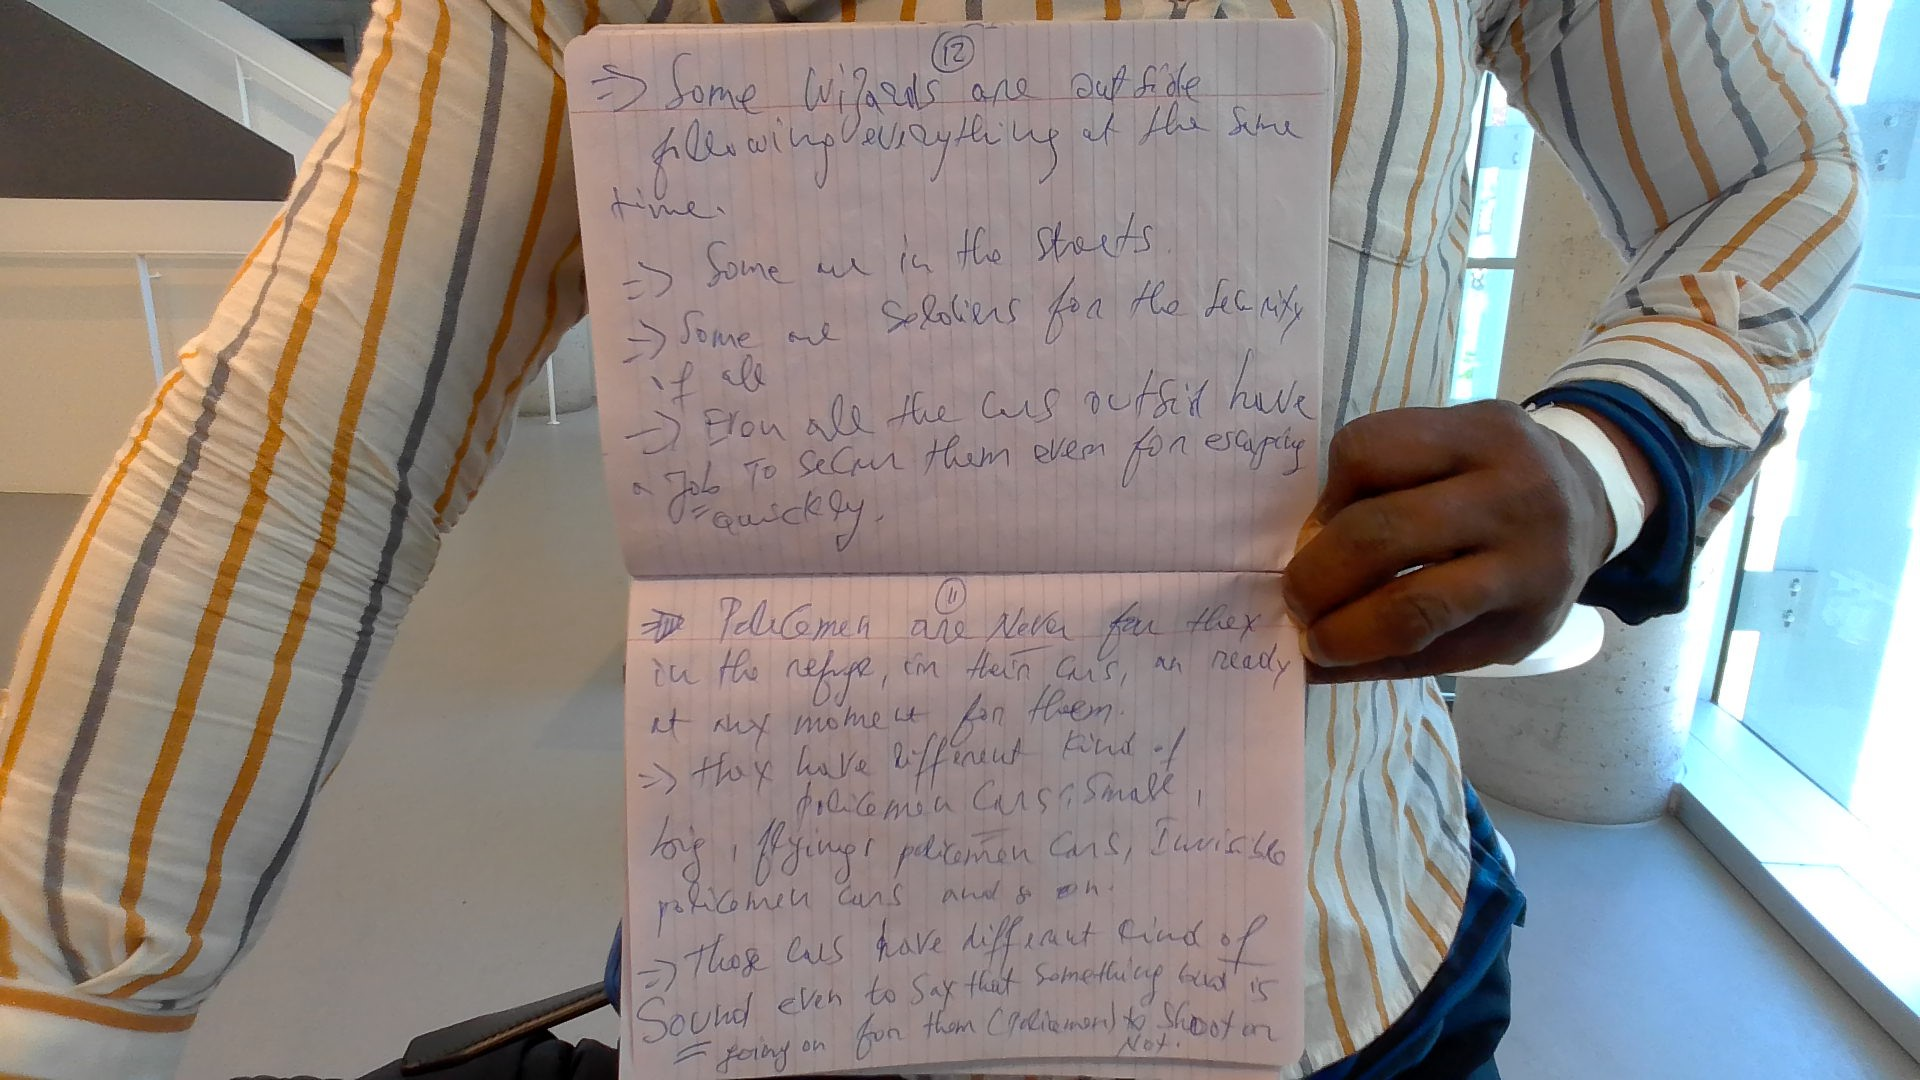 12
=> Some Wizards are outside
following everything at the same
time.
=> Some are in the streets.
=> Some are Soldiers for the security
if all
=> Even all the cars outside have
a Job To secure them even for escaping
quickly.
11
=> Policemen are Never far they
in the refuge, in their cars, are ready
at any moment for them.
=> they have different kind of
policemen cars, small,
big, flying policemen cars, Invisible
policemen cars and so on.
=> Those cars have different kind of
Sound even to say that something bad is
going on for them (policemen) to shoot or
Not.